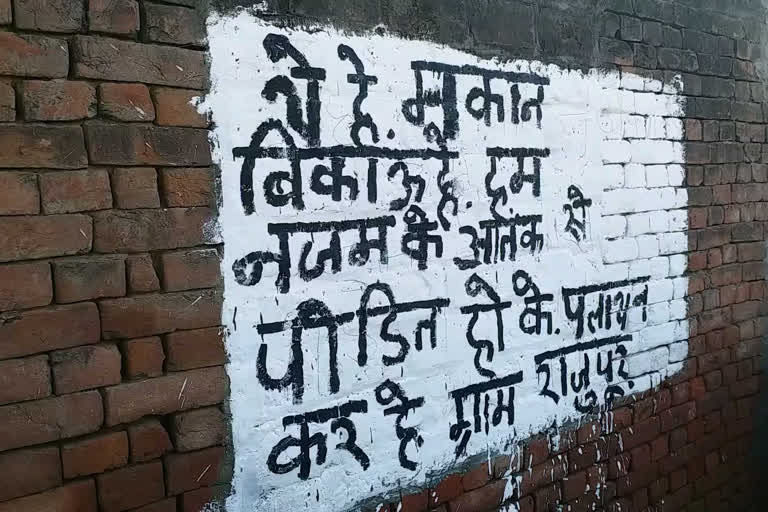 ये है. मकान
बिकाऊ है. हम
नजम के आतंक से
पीडित हो के. पलायन
कर रहे ग्राम राजुपुर